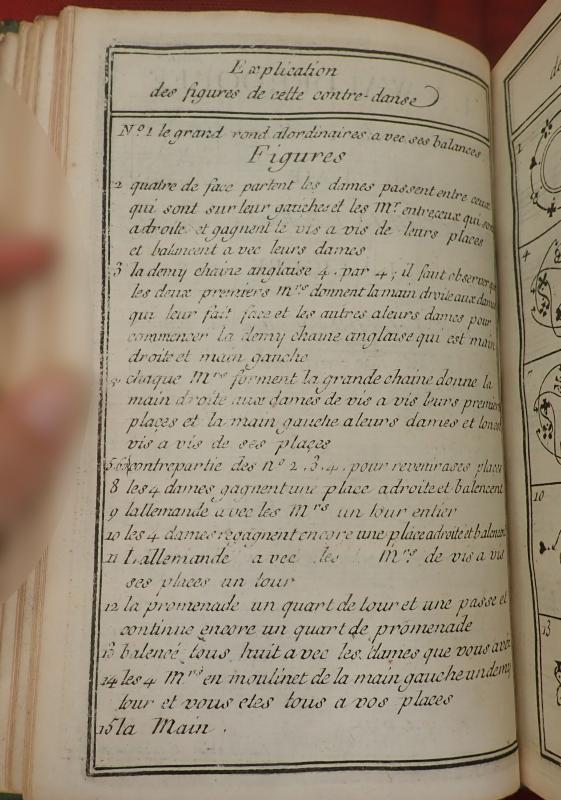 Explication
des figures de cette contre-danse
Nº. 1 le grand rond alordinaires avec ses balances
Figures
2 quatre de face partent les dames passent entre ceux
qui sont sur leur gauches et les Mr. entre ceux qui sont
adroite et gagnent le vis a vis de leurs places
et balancent avec leurs dames
3 la demy chaine anglaise 4. par 4, il faut observer que
les deux premiers Mrs donnent la main droite aux dames
qui leur fait face et les autres aleurs dames pour
commencer la demy chaine anglaise qui est main
droite et main gauche
4 chaque Mrs forment la grande chaine donne la
main droite aux dames de vis a vis leurs premieres
places et la main gauche aleurs dames et
vis a vis de ses places
5.6.7 contrepartie des nº 2. 3. 4. pour revenir a ses places
8 les 4 dames gagnent une place adroite et balencent
9 lallemande avec les Mrs un tour entier
10 les 4 dames regagnent encore une place adroite et balencent
11 Lallemande avec les Mrs de vis a vis
ses places un tour
12 la promenade un quart de tour et une passe et
continue encore un quart de promenade
13 balencé tous huit avec les dames que vous avez
14 les 4 Mrs en moulinet de la main gauche un demy
tour et vous etes tous a vos places
15 la Main.
1
10
13